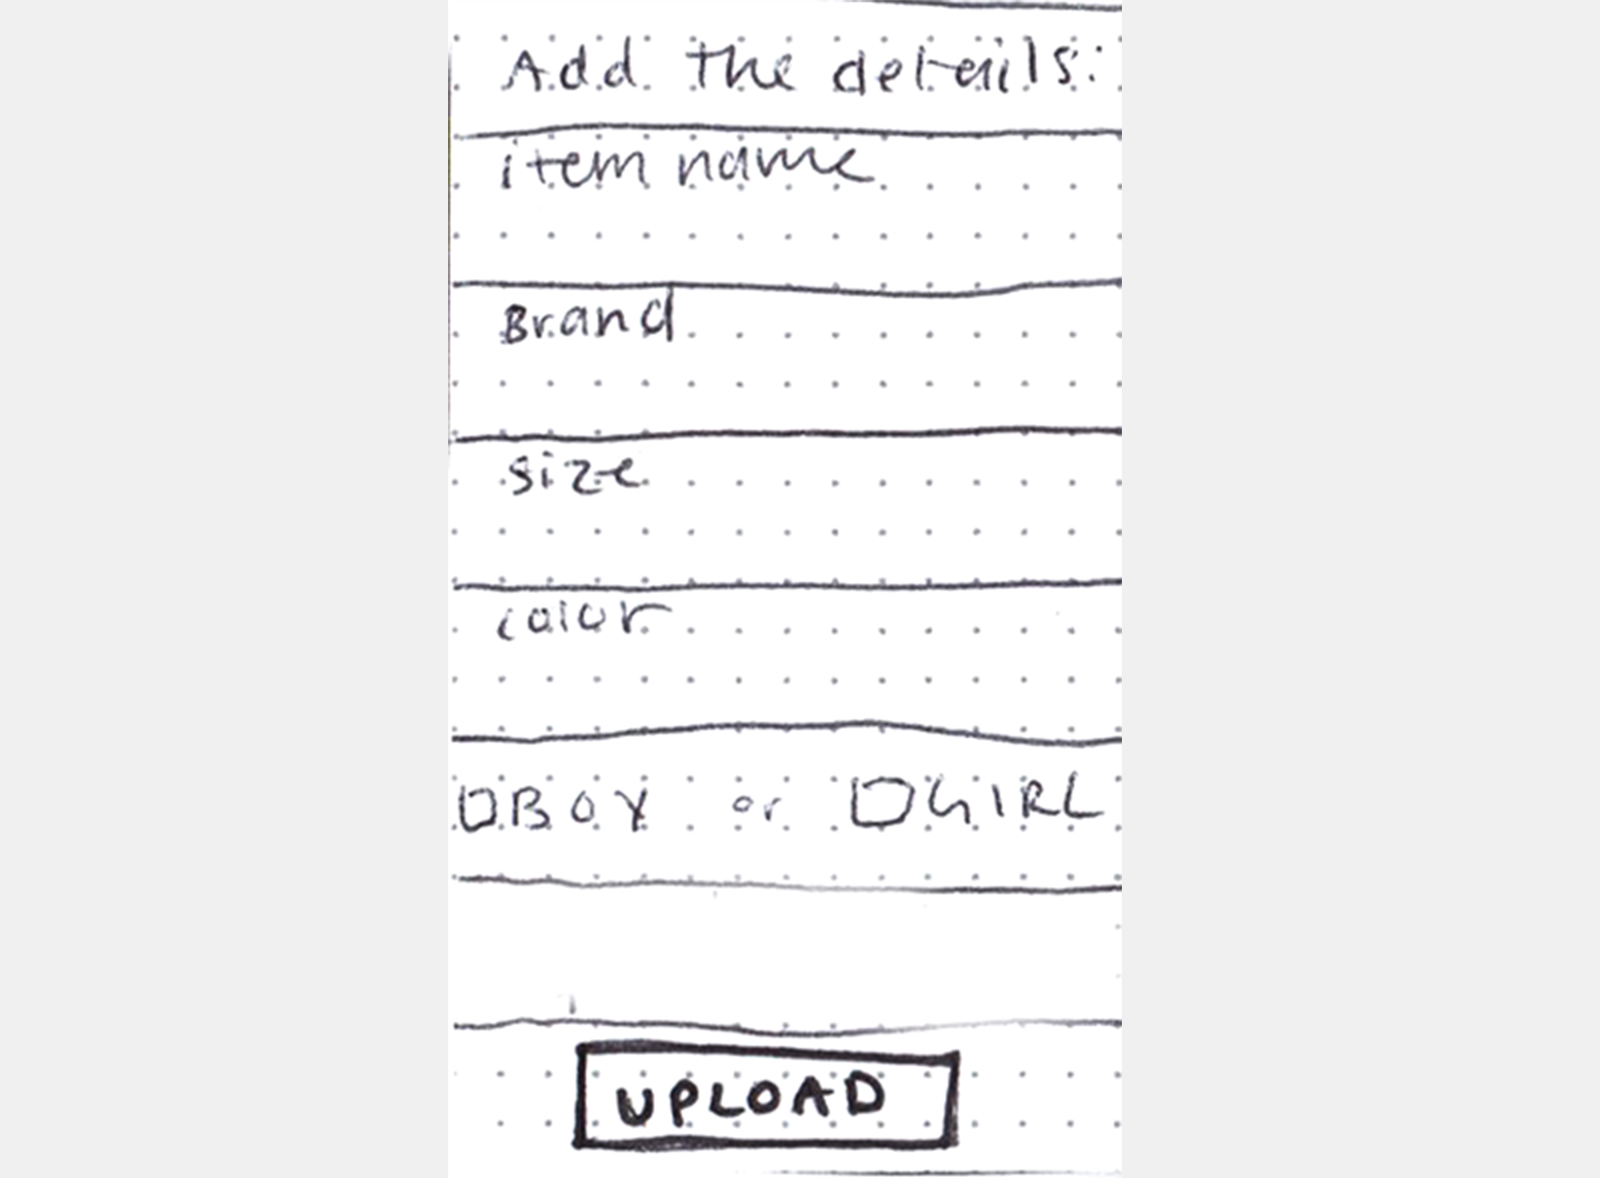 Add the details:
item name
Brand
size
color
BOY or GIRL
UPLOAD